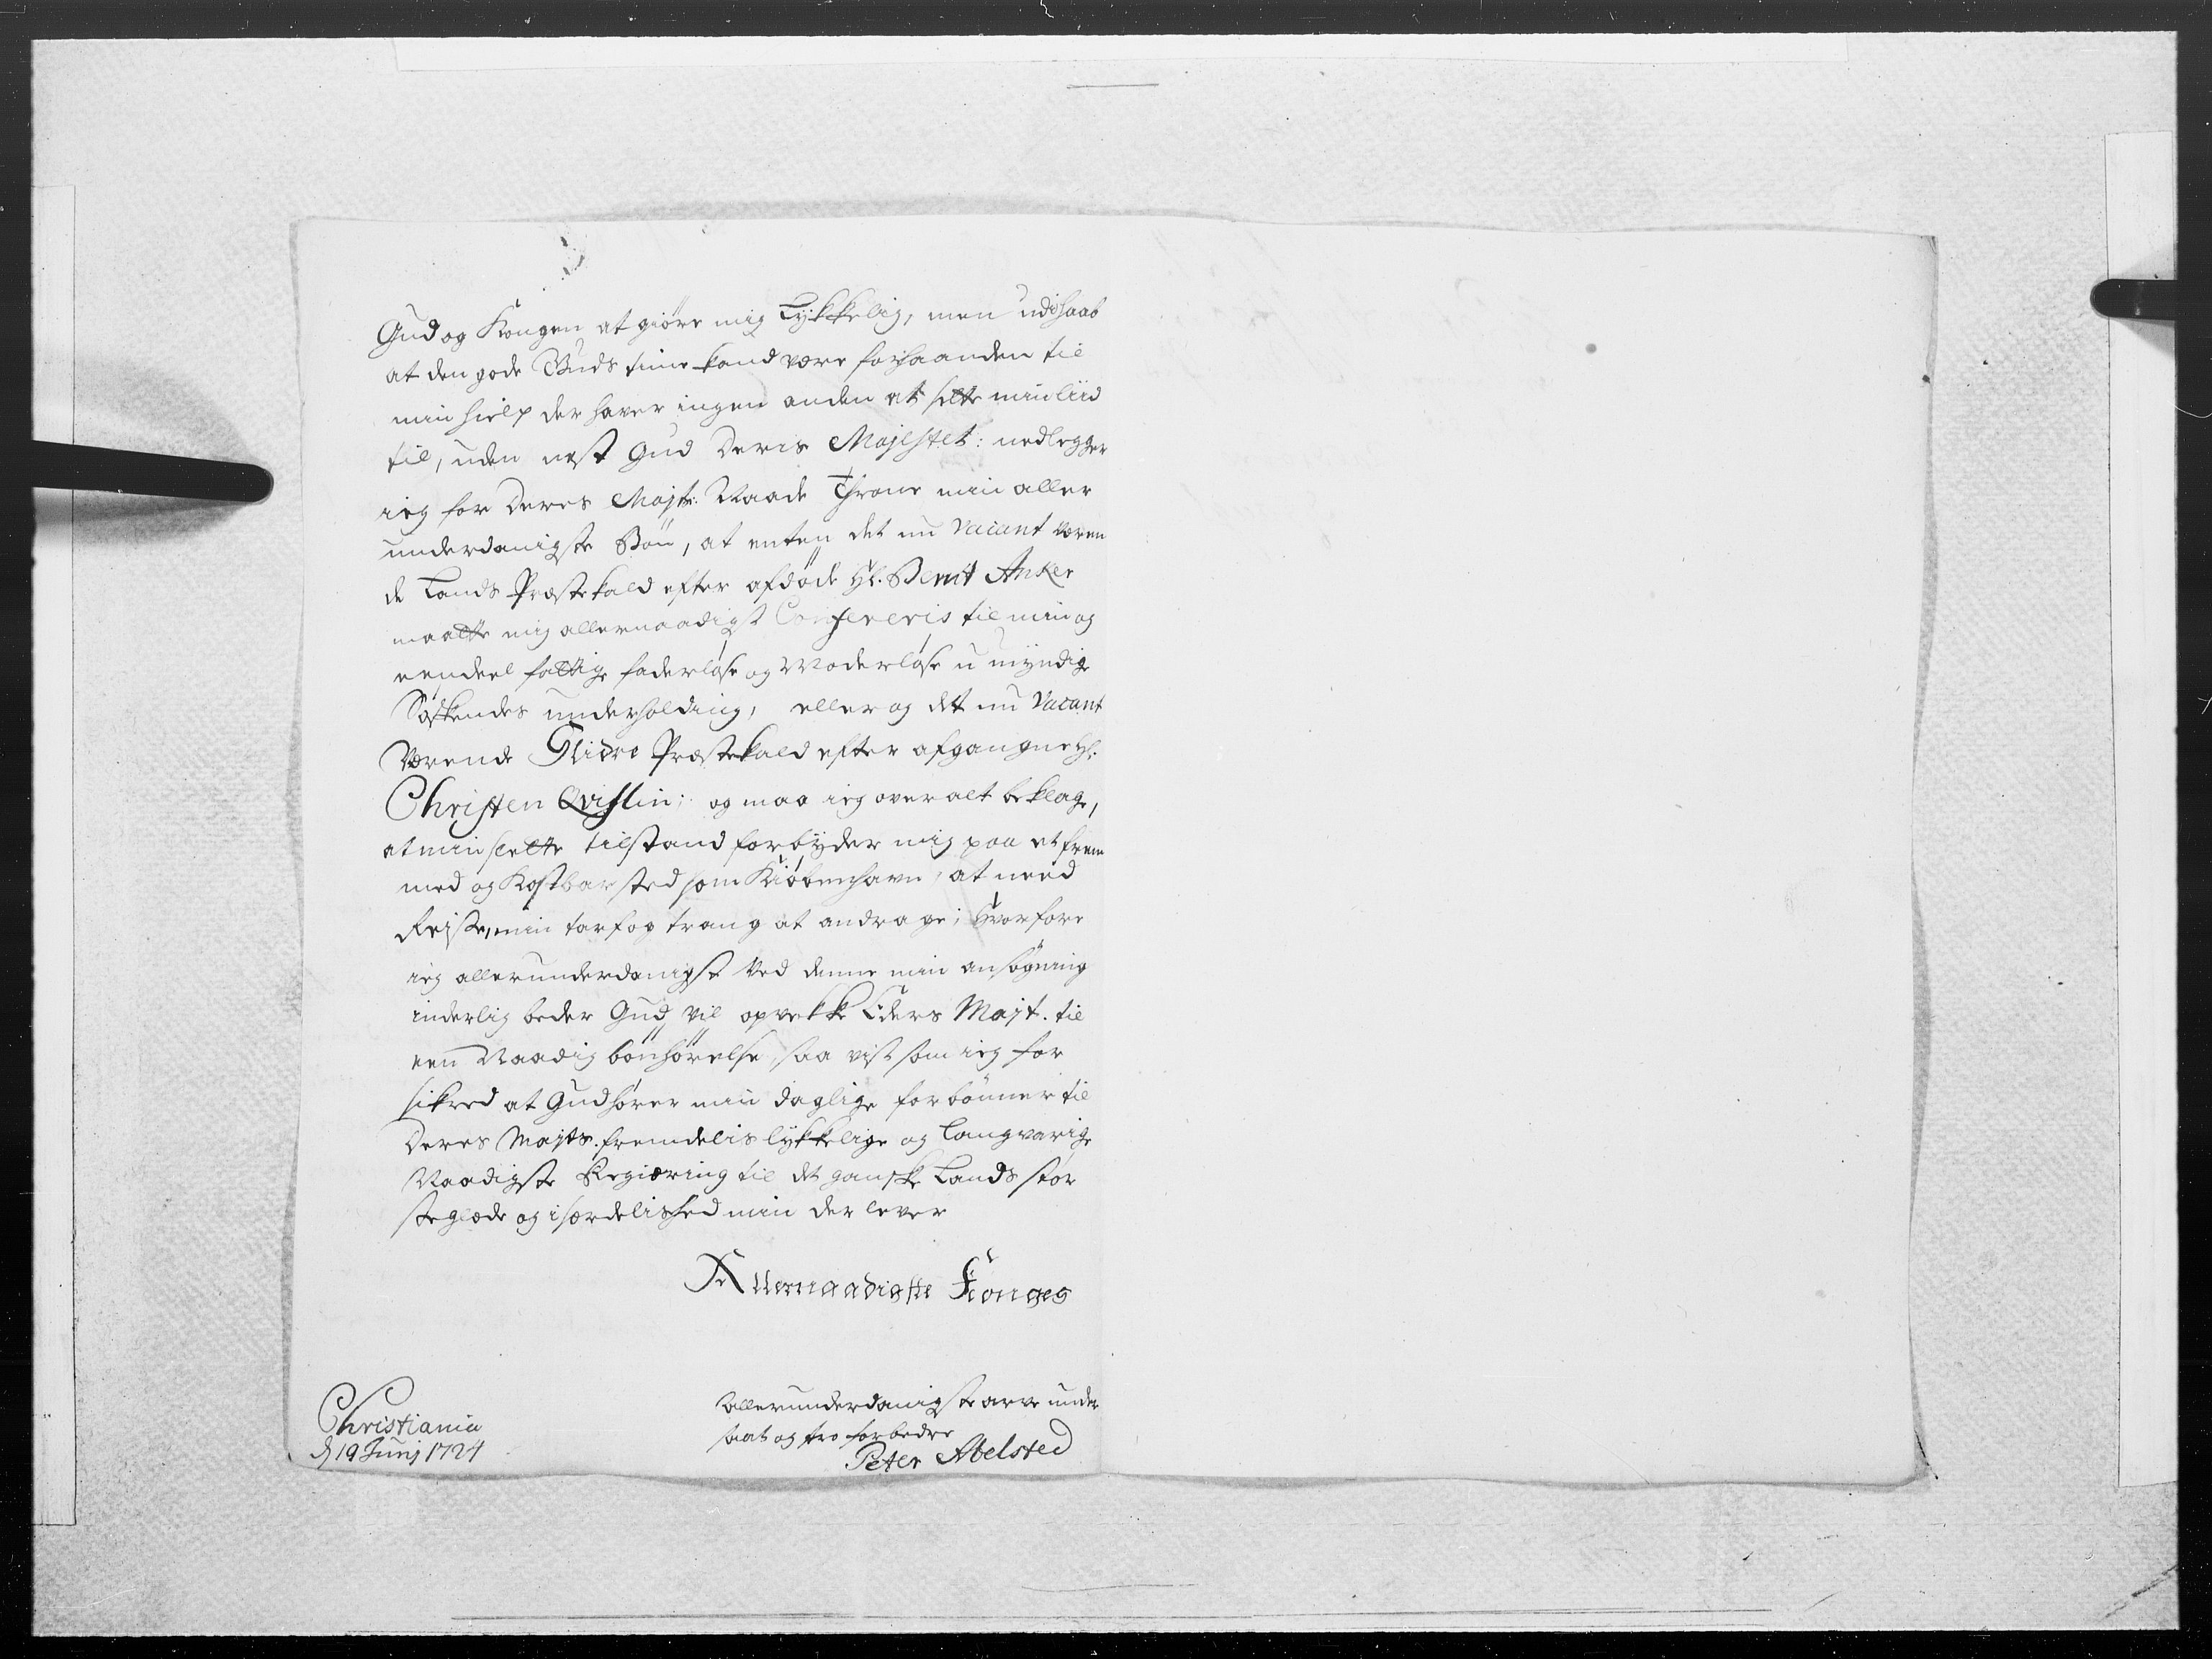 Gud og Kongen at giöre mig Lykkelig, men udi haab
at den gode Guds time kand være forhaanden til
min hielp der haver ingen anden at sette min liid
til, uden nest Gud Deris Majestet: nedlegger
ieg for Deres Majts: Naade Throne min aller
underdanigste Bön, at enten det nu vacant væren
de Lands Præstekald efter afdöde Hr. Bernt Anker
maatte mig allernaadigst Confereris til min og
eendeel fattige faderløse og Moderløse u myndige
Søskendes underholding, eller og det nu vacant
Værende Slidre Præstekald efter afgangne Hr.
Christen Qvislin; og maa ieg over alt beklage,
at min slette tilstand forbyder mig paa et frem
med og Kostbar sted som Kiøbenhavn, at need
Reise, min tarf og trang at andrage; Hvorfore
ieg allerunderdanigst Ved denne min ansøgning
inderlig beder Gud vil opvekke Eders Majt. til
een Naadig bönhörelse, saa vist som ieg for
sikred at Gud hører min daglige forbönner til
Deres Majts. fremdelis lykkelige og langvarige
Naadigste Regiæring til det ganske Lands stør
ste glæde og i særdelished min der lever
Allernaadigste Konges
Christiania
d 19 Junj 1724
Allerunderdanigste arve under
saat og tro forbedre
Peter Abelsted